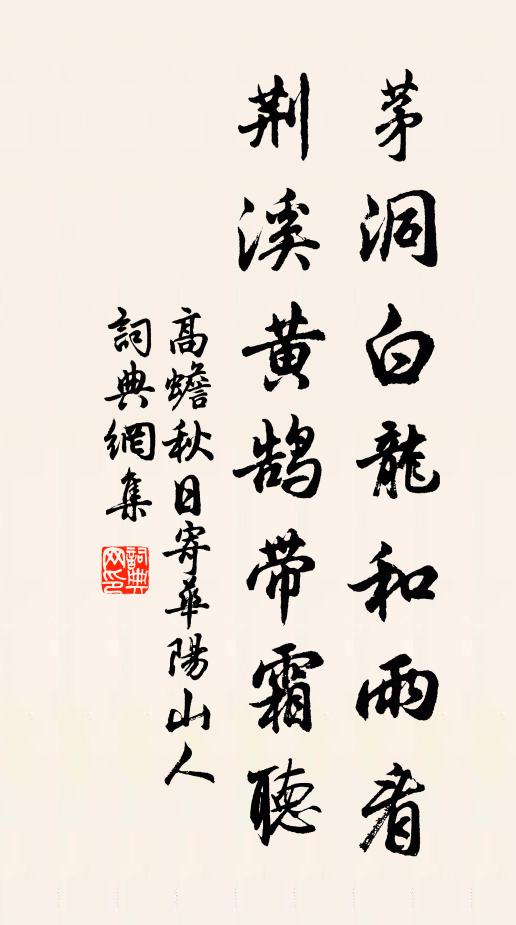 茅洞白龍和雨看
荆溪黄鹄带霜聽
高蟾秋日寄華陽山人
詞典網集
詞典网印